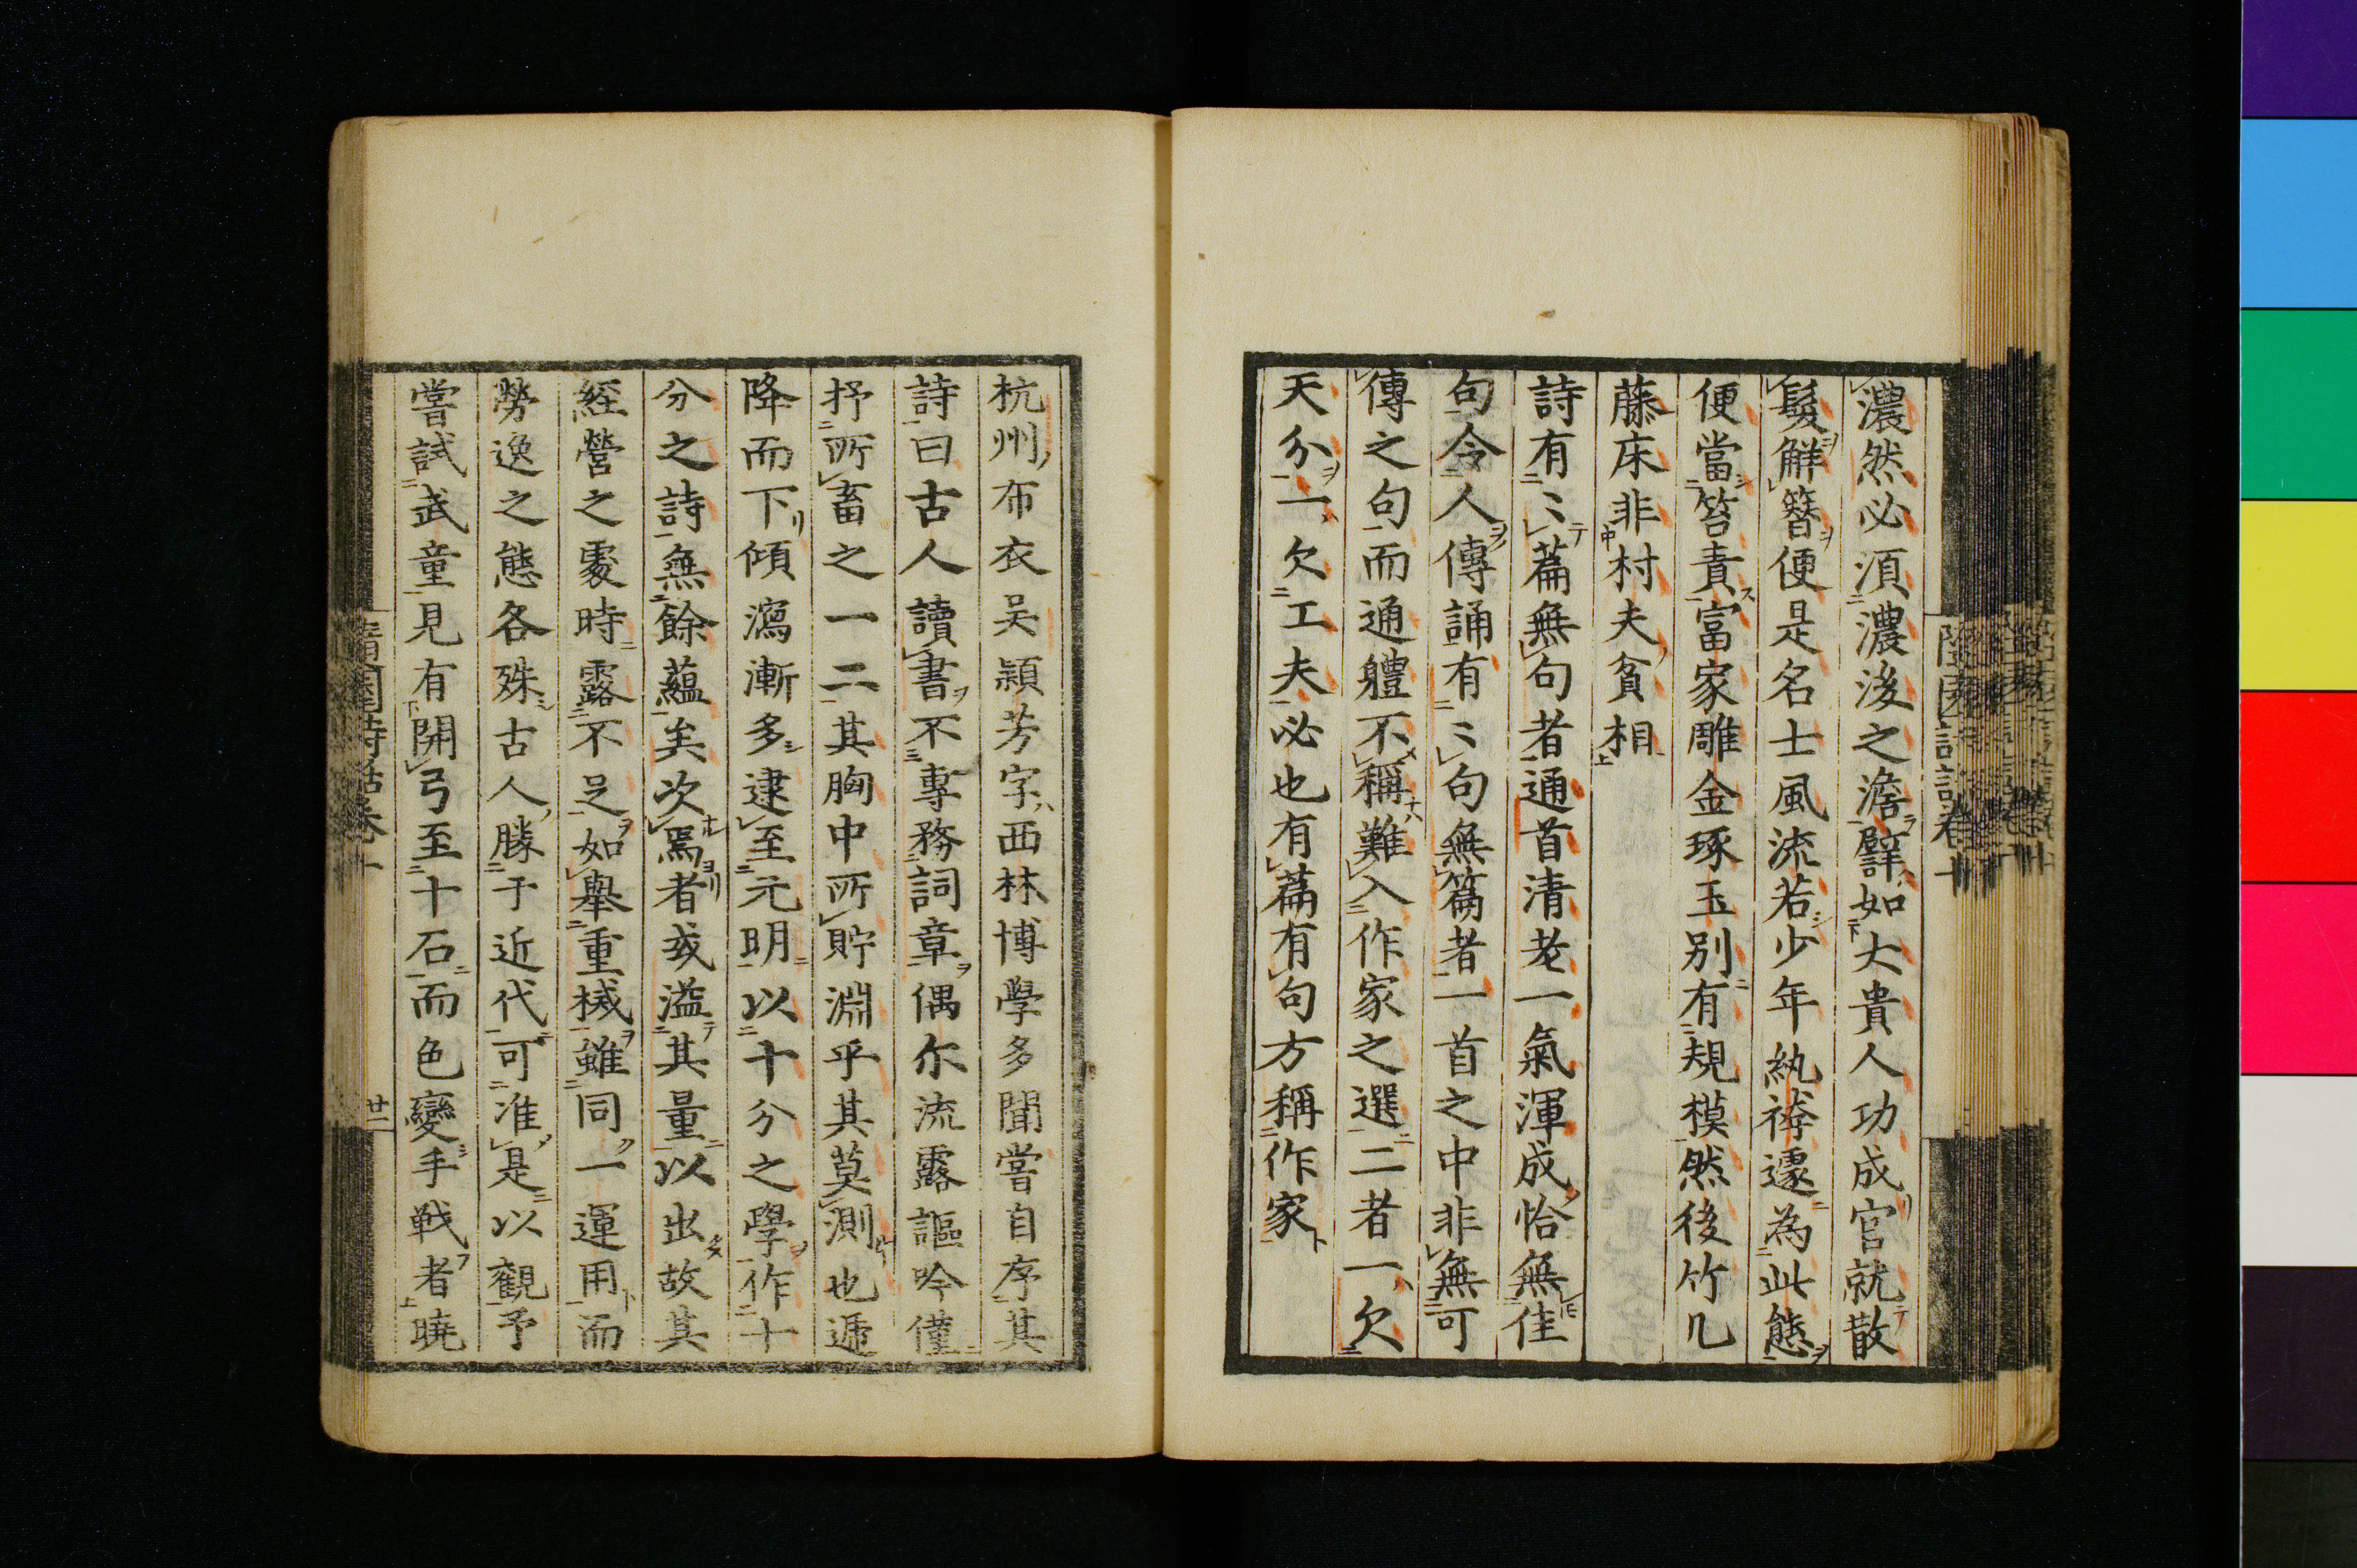 濃然必須濃後之澹譬如大貴人功成官就散
髮解簪便是名士風流若少年紈袴遽為此態
便當笞責富家雕金琢玉别有規模然後竹几
藤床非村夫貧相
詩有〻篇無句者通首清老一氣渾成恰無佳
句令人傳誦有〻句無篇者一首之中非無可
傳之句而通體不稱難入作家之選二者一欠
天分一欠工夫必也有篇有句方稱作家
杭州布衣吴頴芳字西林博學多聞嘗自序其
詩曰古人讀書不專務詞章偶尔流露謳吟僅
抒所畜之一二其胸中所貯淵乎其莫測也遞
降而下傾瀉漸多逮至元明以十分之學作十
分之詩無餘蘊矣次焉者或溢其量以出故其
經營之處時露不足如舉重械雖同一運用而
勞逸之態各殊古人勝于近代可准是以觀予
嘗試武童見有開弓至十石而色變手戰者曉
隨園詩話卷十
廿二